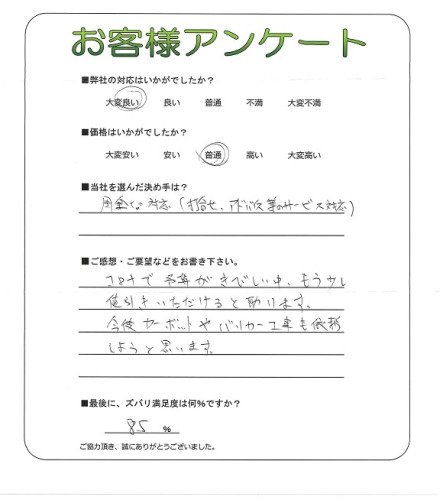 お客様アンケート
■弊社の対応はいかがでしたか？
大変良い 良い 普通 不満 大変不満
■価格はいかがでしたか？
大変安い 安い 普通 高い 大変高い
■当社を選んだ決め手は？
対応(打合せ、アドバイス等のサービス対応)
■ご感想・ご要望などをお書き下さい。
コロナで予算がきびしい中、もう少し
値引きいただけると助ります。
今後カーポットやバリカー工事も依頼
しようと思います。
■最後に、ズバリ満足度は何%ですか？
85 %
ご協力頂き、誠にありがとうございました。